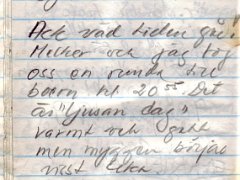 Ack vad tiden går.
Melker och jag tog
oss en runda till
bacon kl 20⁵⁵. Det
är "ljusan dag"
varmt och gott
men myggen börjar
visst